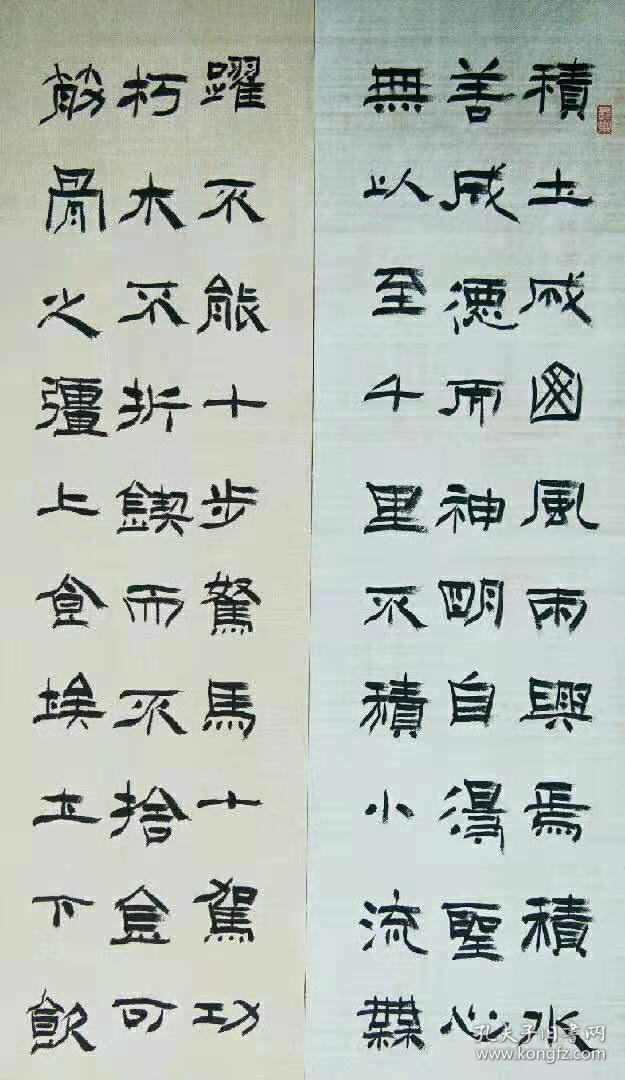 積土成風雨興焉積水
善成德而神明自得聖心
無以至千里不積小流無
躍不能十步駑馬十駕功
朽木不折鍥而不捨金可
筋骨之彊上食埃土下飲
孔夫子旧书网
www.kongfz.com